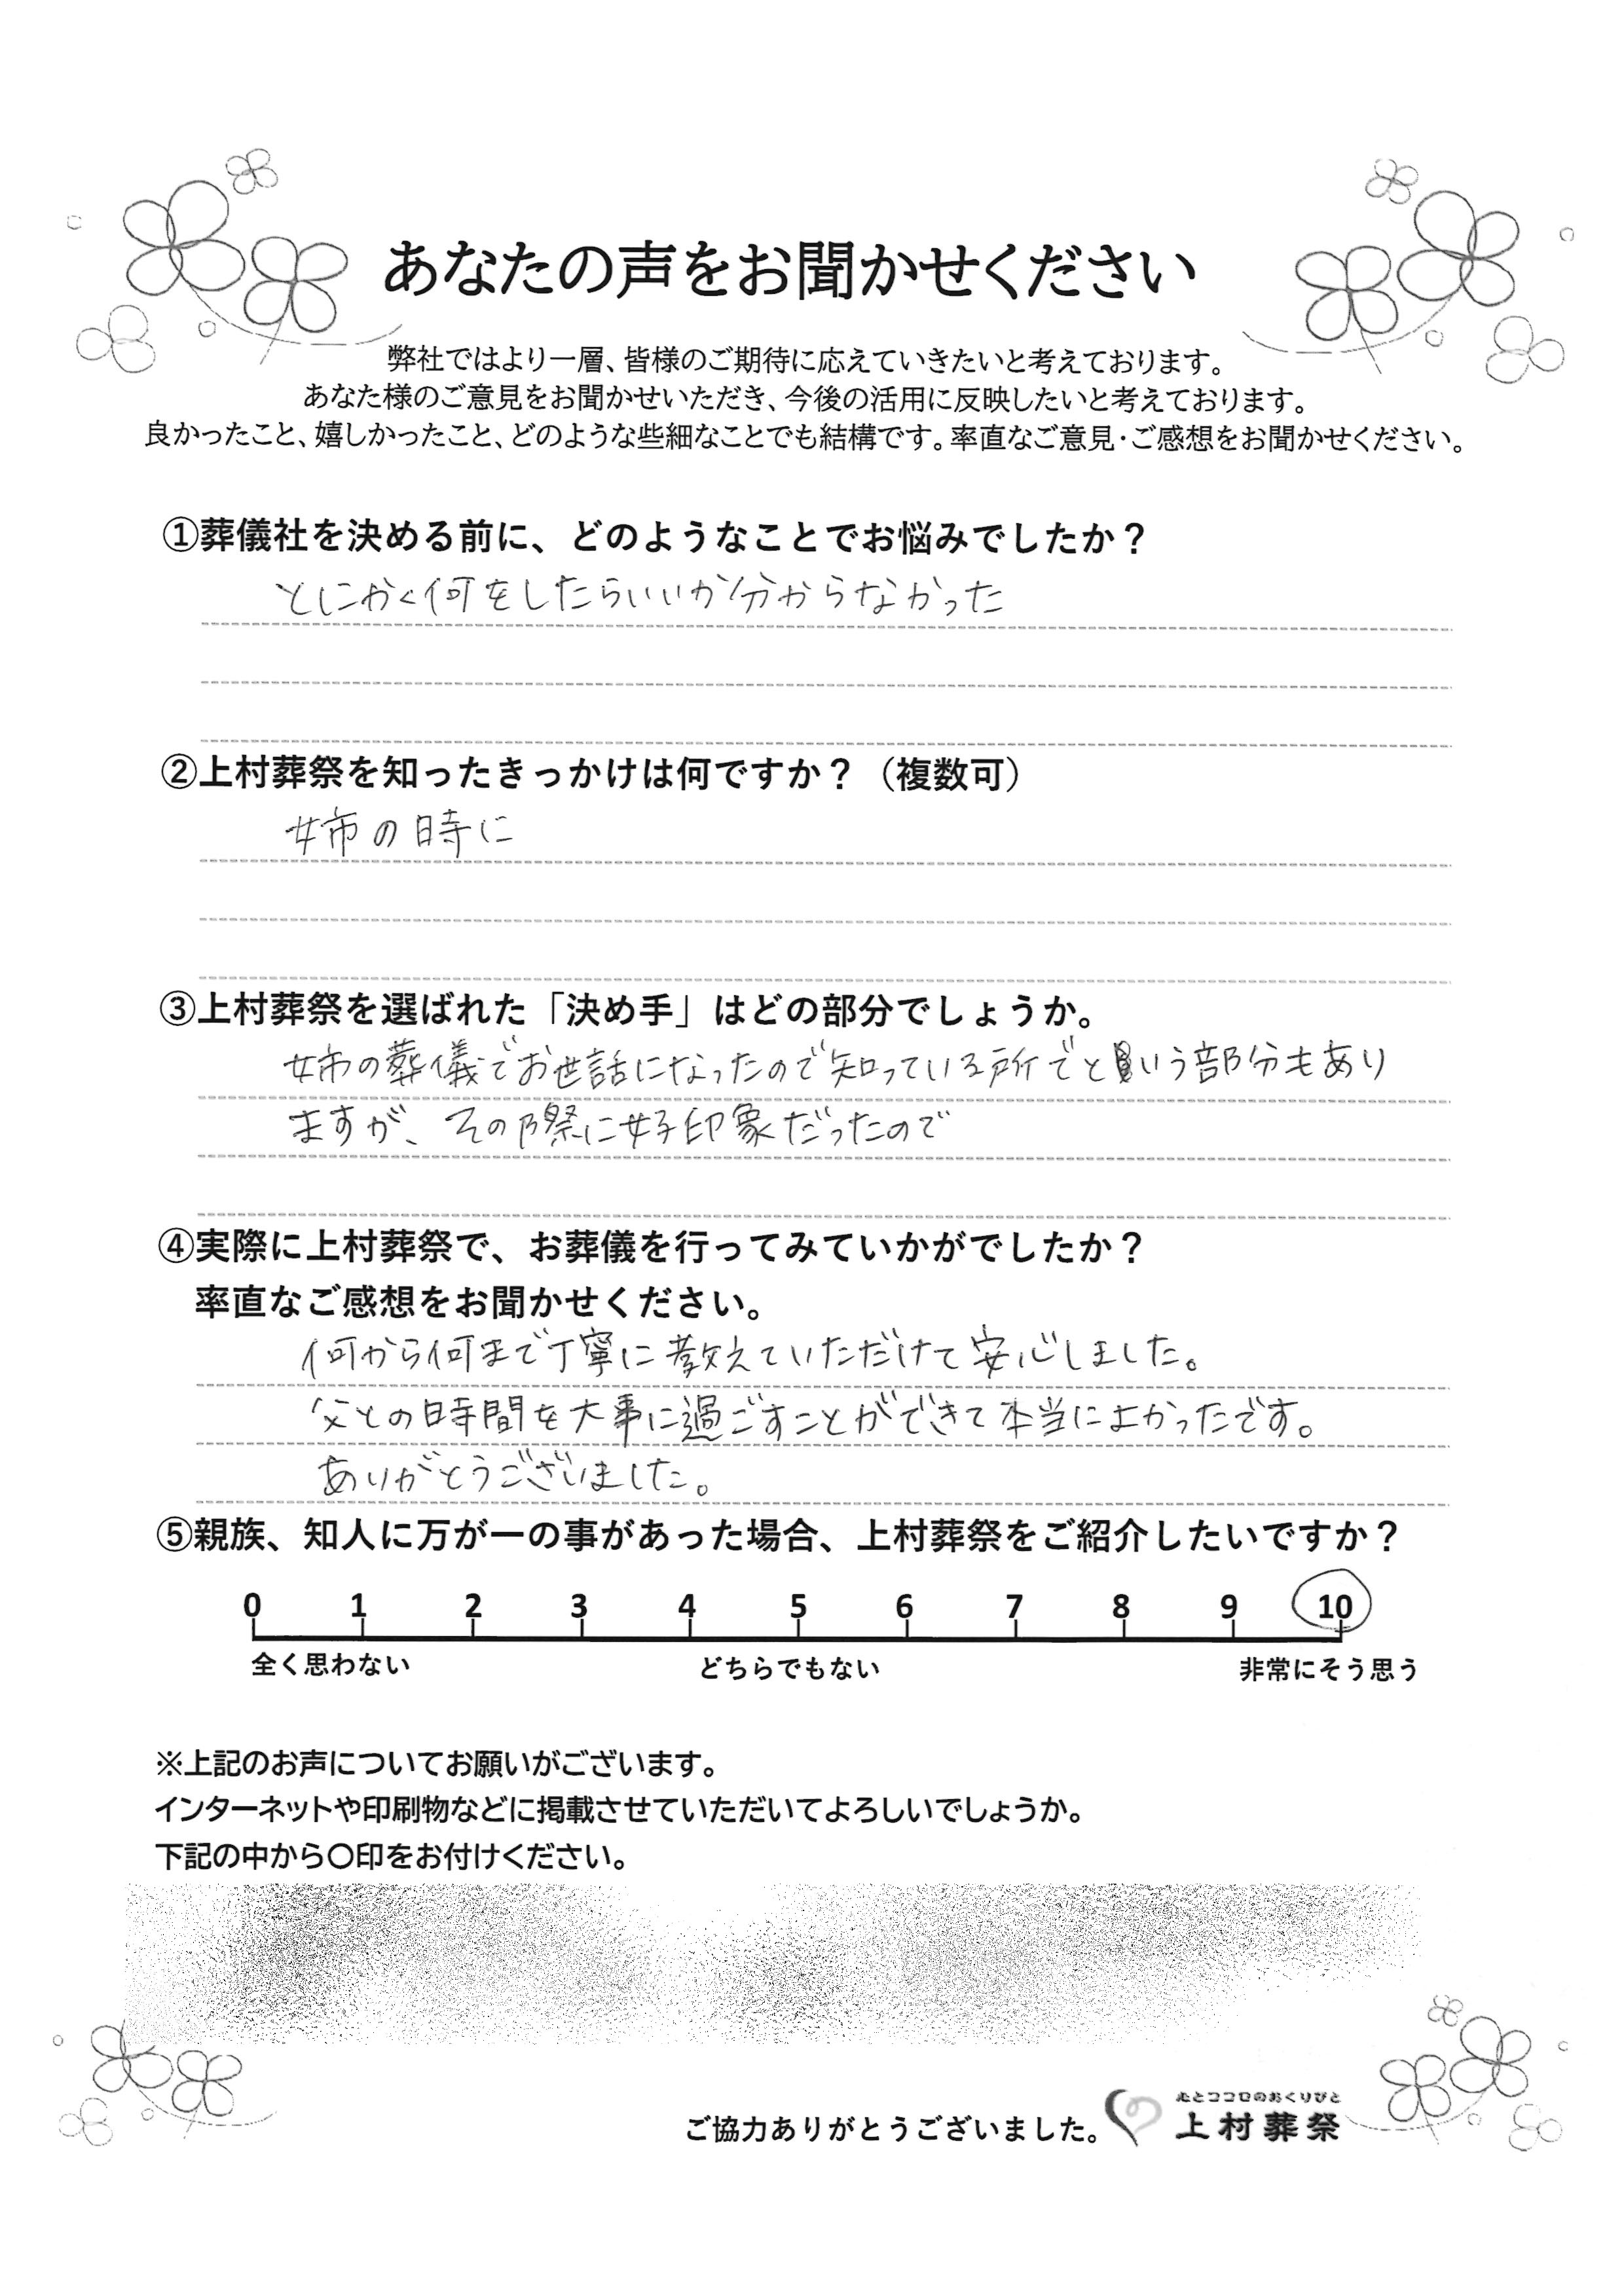 あなたの声をお聞かせください
弊社ではより一層、皆様のご期待に応えていきたいと考えております。
あなた様のご意見をお聞かせいただき、今後の活用に反映したいと考えております。
良かったこと、嬉しかったこと、どのような些細なことでも結構です。率直なご意見・ご感想をお聞かせください。
①葬儀社を決める前に、どのようなことでお悩みでしたか？
とにかく何をしたらいいか分からなかった
②上村葬祭を知ったきっかけは何ですか？（複数可）
姉の時に
③上村葬祭を選ばれた「決め手」はどの部分でしょうか。
姉の葬儀でお世話になったので知っている所でという部分もあり
ますが、その際に好印象だったので
④実際に上村葬祭で、お葬儀を行ってみていかがでしたか？
率直なご感想をお聞かせください。
何から何まで丁寧に教えていただけて安心しました。
父との時間を大事に過ごすことができて本当によかったです。
ありがとうございました。
⑤親族、知人に万が一の事があった場合、上村葬祭をご紹介したいですか？
0 1 2 3 4 5 6 7 8 9 10
全く思わない どちらでもない 非常にそう思う
※上記のお声についてお願いがございます。
インターネットや印刷物などに掲載させていただいてよろしいでしょうか。
下記の中から〇印をお付けください。
心とココロのおくりびと
ご協力ありがとうございました。 上村葬祭